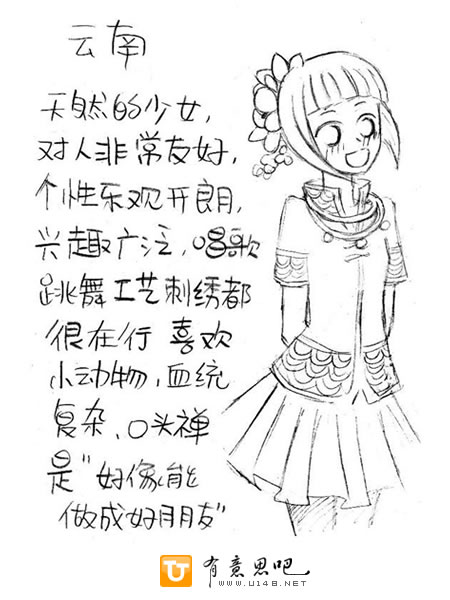 云南
天然的少女,
对人非常友好,
个性乐观开朗,
兴趣广泛,唱歌
跳舞工艺刺绣都
很在行 喜欢
小动物,血统
复杂、口头禅
是"好像能
做成好朋友"
有意思吧
www.u148.net